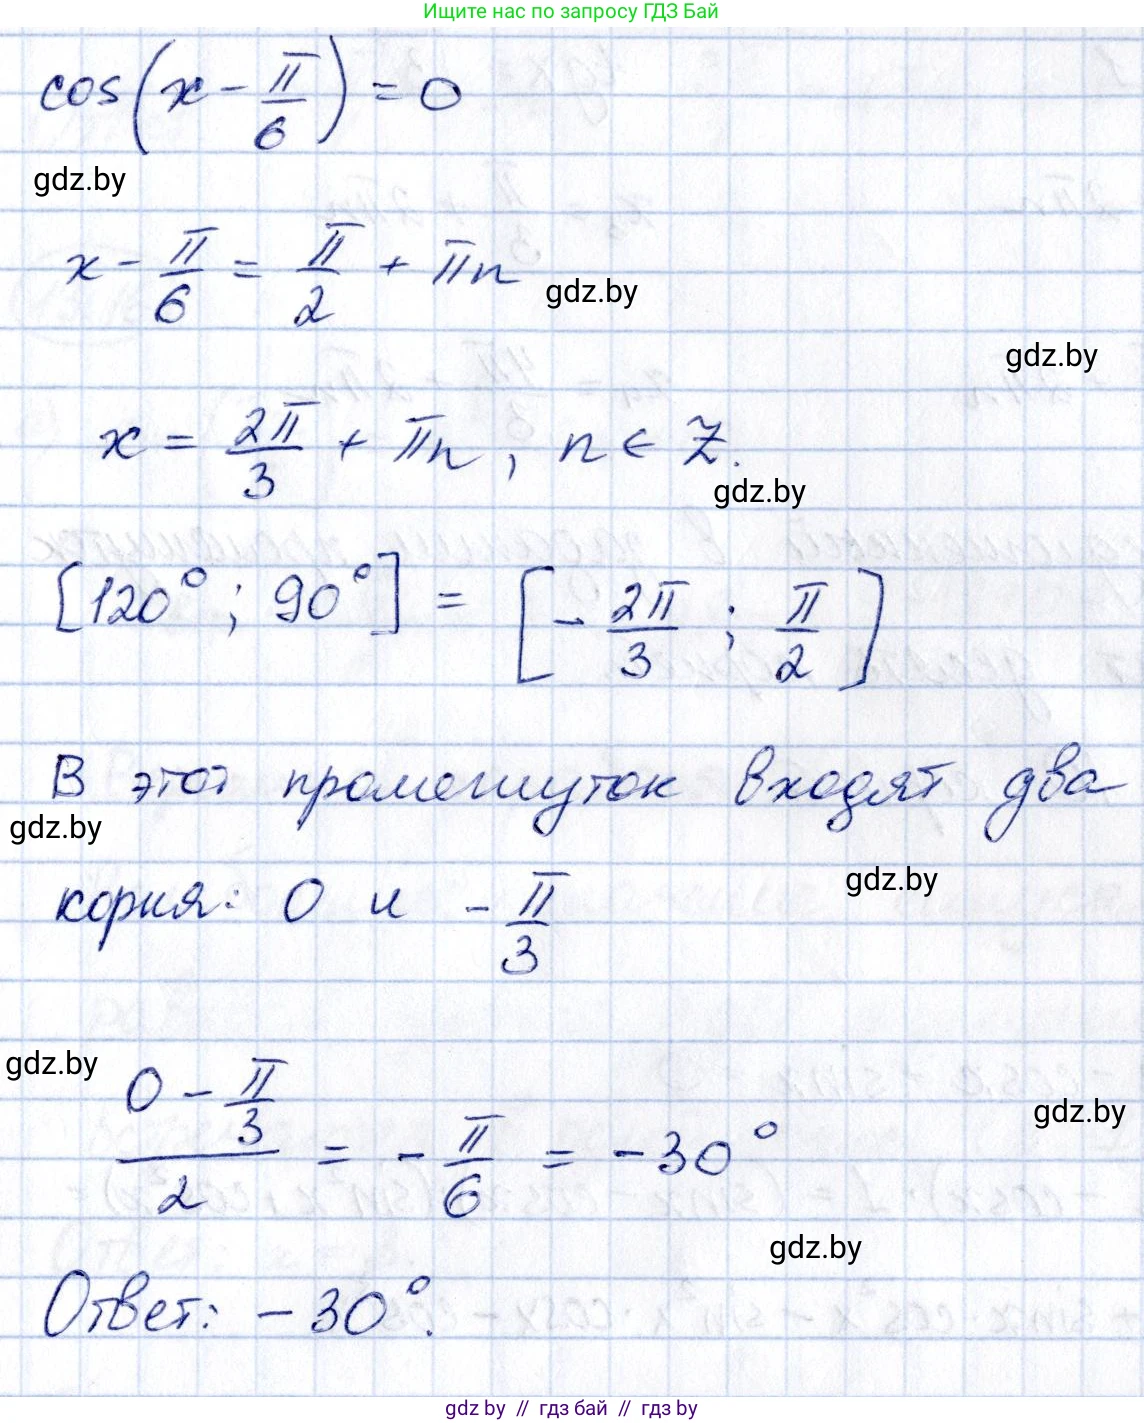 Ищите нас по запросу ГДЗ Бай
cos(x - π/6) = 0
gdz.by
x - π/6 = π/2 + πn
gdz.by
gdz.by
x = 2π/3 + πn, n ∈ Z.
gdz.by
[120°; 90°] = [-2π/3; π/2]
В этот промежуток входят два
gdz.by
gdz.by
корня: 0 и -π/3
gdz.by
(0 - π/3)/2 = -π/6 = -30°
gdz.by
gdz.by
Ответ: -30°.
gdz.by // гдз бай // gdz.by